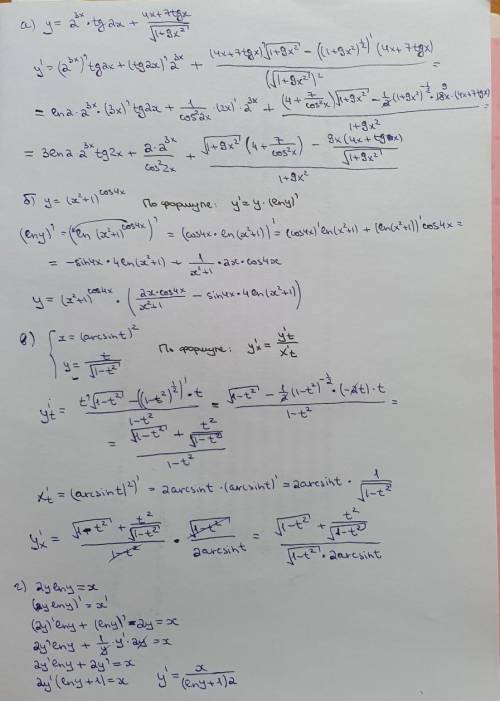 а) y = 2^{3x} · tg2x + (4x+7tgx)/√(1+9x²)
y' = (2^{3x})' tg2x + (tg2x)' 2^{3x} + ((4x+7tgx)'√(1+9x²) − ((1+9x²)^{1/2})' (4x+7tgx))/(√(1+9x²))² =
= ln2·2^{3x}·(3x)' tg2x + 1/cos²2x · (2x)'·2^{3x} + ((4+7/cos²x)√(1+9x²) − 1/2(1+9x²)^{-1/2}·18x·(4x+7tgx))/(1+9x²)
= 3ln2·2^{3x}tg2x + (2·2^{3x})/cos²2x + (√(1+9x²)(4+7/cos²x) − 9x(4x+7tgx)/√(1+9x²))/(1+9x²)
б) y = (x²+1)^{cos4x} По формуле: y' = y·(lny)'
(lny)' = (ln(x²+1)^{cos4x})' = (cos4x·ln(x²+1))' = (cos4x)'ln(x²+1) + (ln(x²+1))'cos4x =
= −sin4x·4ln(x²+1) + 1/(x²+1) · 2x·cos4x
y = (x²+1)^{cos4x} · (2x·cos4x/(x²+1) − sin4x·4ln(x²+1))
в) { x = (arcsint)²
y = t/√(1−t²) По формуле: y'x = y't/x't
y't = (t'√(1−t²) − ((1−t²)^{1/2})'·t)/(1−t²) = (√(1−t²) − 1/2(1−t²)^{-1/2}·(−2t)·t)/(1−t²) =
= (√(1−t²) + t²/√(1−t²))/(1−t²)
x't = (arcsint)²)' = 2arcsint·(arcsint)' = 2arcsint · 1/√(1−t²)
y'x = (√(1−t²) + t²/√(1−t²))/(1−t²) · √(1−t²)/2arcsint = (√(1−t²) + t²/√(1−t²))/(√(1−t²)·2arcsint)
г) 2ylny = x
(2ylny)' = x'
(2y)'lny + (lny)'·2y = x
2y'lny + 1/y·y'·2y = x
2y'lny + 2y' = x
2y'(lny+1) = x y' = x/((lny+1)2)